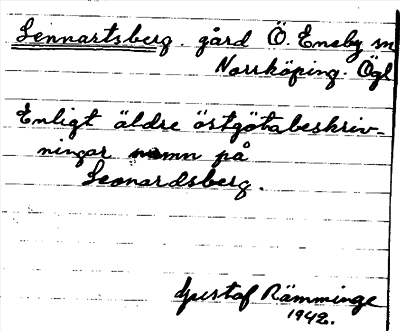 Lennartsberg. gård Ö. Eneby sn
Norrköping. Ögl
Enligt äldre östgötabeskriv-
ningar namn på
Leonardsberg.
Gustaf Rämminge
1942.